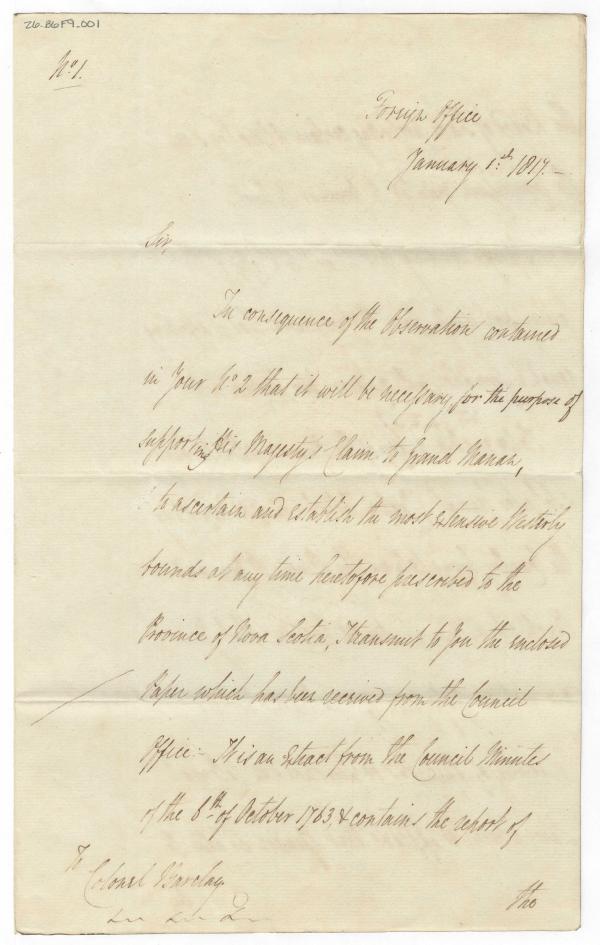 26-B6F9-001
No. 1.
Foreign Office
January 1.st 1817.—
Sir,
In consequence of the Observation contained
in Your No. 2 that it will be necessary for the purpose of
supporting His Majesty's Claim to Grand Manan,
to ascertain and establish the most extensive Westerly
bounds at any time heretofore prescribed to the
Province of Nova Scotia, I transmit to You the enclosed
Paper which has been received from the Council
Office:- It is an extract from the Council Minutes
of the 8th of October 1763, & contains the report of
To
Colonel Barclay
the